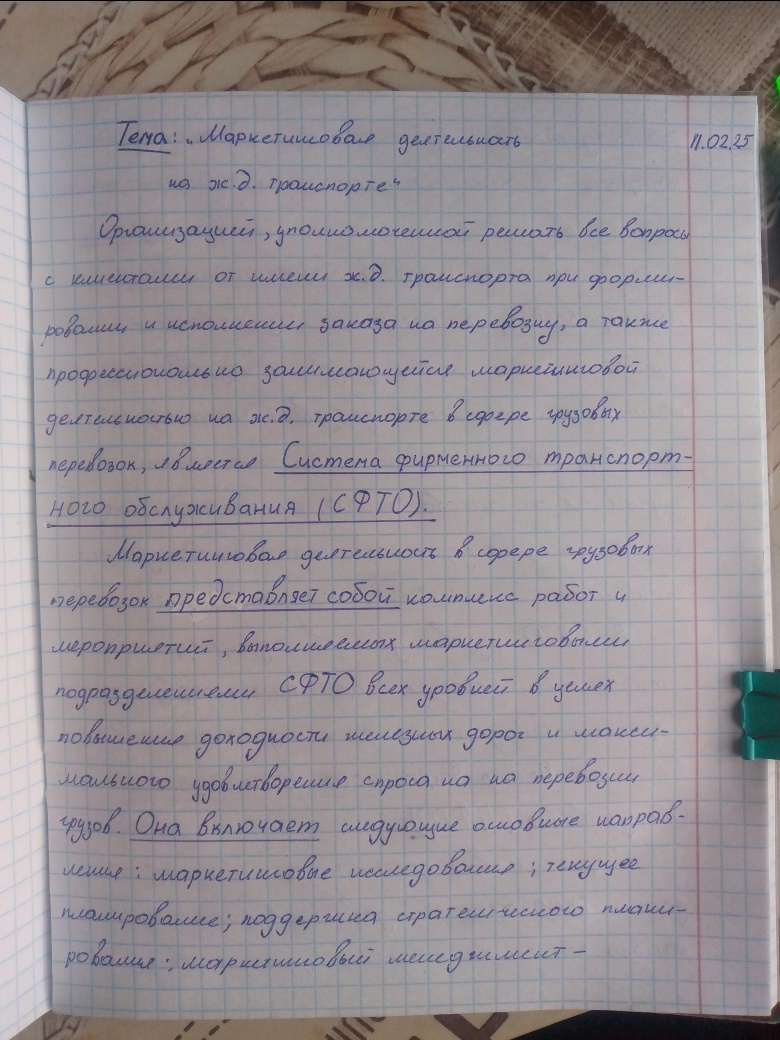 Тема: „Маркетинговая деятельность
11.02.25
на ж.д. транспорте“
Организацией, уполномоченной решать все вопросы
с клиентами от имени ж.д. транспорта при форми-
ровании и исполнении заказа на перевозку, а также
профессионально занимающейся маркетинговой
деятельностью на ж.д. транспорте в сфере грузовых
перевозок, является Система фирменного транспорт-
ного обслуживания (СФТО).
Маркетинговая деятельность в сфере грузовых
перевозок представляет собой комплекс работ и
мероприятий, выполняемых маркетинговыми
подразделениями СФТО всех уровней в целях
повышения доходности железных дорог и макси-
мального удовлетворения спроса на на перевозки
грузов. Она включает следующие основные направ-
ления: маркетинговые исследования; текущее
планирование; поддержка стратегического плани-
рования; маркетинговый менеджмент –